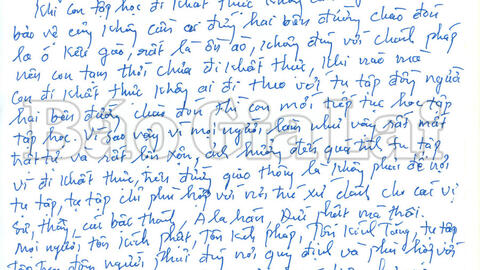 Khi con tập học đi khất thực không cần
bảo vệ cũng không cần ai đứng hai bên đường chào đón
la ó kêu gào, rất là ồn ào, không đúng với chánh pháp
nên con tạm thời chưa đi khất thực, khi nào mà
con đi khất thực không ai đi theo với tu tập đầy người
hai bên đường chào đón thì con mới tiếp tục học tập
tập học vì sao vậy vì mọi người làm như vậy rất mất
trật tự và rất lộn xộn, ảnh hưởng đến quá trình tu tập
vì đi khất thực, trên đường giao thông là không phải để nơi
tu tập, tu tập chỉ phù hợp với nơi, trú xứ dành cho các vị
sư, thầy, các bậc thánh, A la hán, Đức phật mà thôi.
Mọi người, tôn kính phật, tôn kính pháp, tôn kính Tăng, tu tập
người phải đúng nơi quy định và phù hợp với
Báo Gia Lai